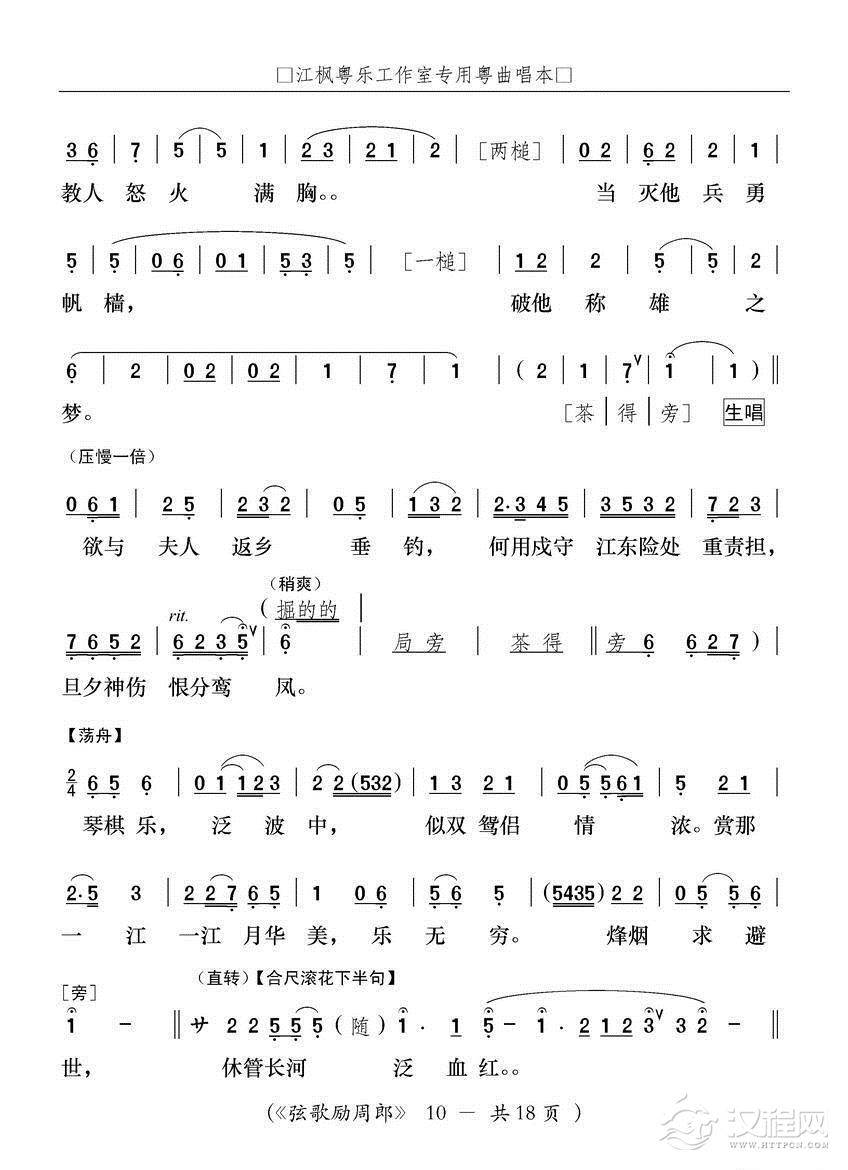 □江枫粤乐工作室专用粤曲唱本□
3 6 | 7 | 5 | 5 | 1 | 2 3 | 2 1 | 2 | [两槌] | 0 2 | 6 2 | 2 | 1
教人 怒 火 满 胸。。 当 灭他 兵 勇
5 | 5 | 0 6 | 0 1 | 5 3 | 5 | [一槌] | 1 2 | 2 | 5 | 5 | 2
帆 樯， 破他 称 雄 之
6 | 2 | 0 2 | 0 2 | 1 | 7 | 1 | ( 2 | 1 | 7 ∨ | 1 | 1 ) ‖
梦。 [茶 | 得 | 旁] 生唱
(压慢一倍)
0 6 1 | 2 5 | 2 3 2 | 0 5 | 1 3 2 | 2· 3 4 5 | 3 5 3 2 | 7 2 3 |
欲与 夫人 返乡 垂 钓， 何用戍守 江东险处 重责担，
(稍爽)
rit. ( 掘的的 |
7 6 5 2 | 6 2 3 5 ∨ | 6 | 局 旁 | 茶 得 ‖ 旁 6 6 2 7 ) |
旦夕神伤 恨分鸾 凤。
【荡舟】
2/4 6 5 6 | 0 1 1 2 3 | 2 2 (532) | 1 3 2 1 | 0 5 5 6 1 | 5 2 1 |
琴棋 乐， 泛 波 中， 似双 鸳侣 情 浓。赏那
2· 5 3 | 2 2 7 6 5 | 1 0 6 | 5 6 5 | (5435) 2 2 | 0 5 5 6 |
一 江 一江 月华 美， 乐 无 穷。 烽烟 求 避
[旁] (直转)【合尺滚花下半句】
1 － ‖ サ 2 2 5 5 5 (随) 1 · 1 5 － 1 · 2 1 2 3 ∨ 3 2 － ‖
世， 休管长河 泛 血 红。。
(《弦歌励周郎》 10 － 共18页 )
汉程网
HTTPCN.COM